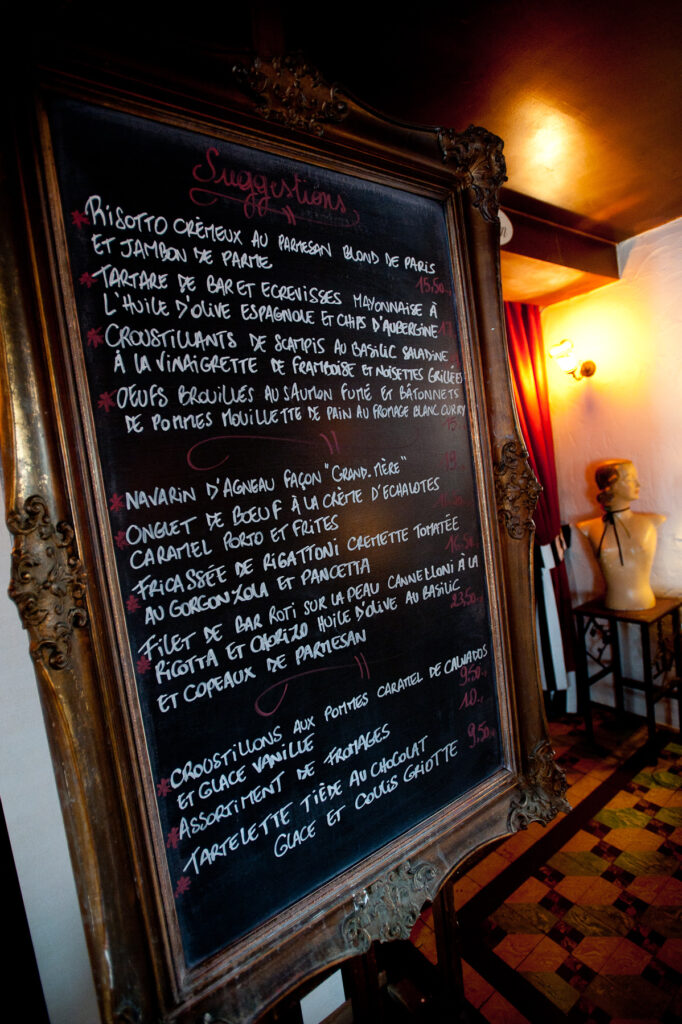 Suggestions
RISOTTO CRÈMEUX AU PARMESAN BLOND DE PARIS
ET JAMBON DE PARME 15,50
TARTARE DE BAR ET ECREVISSES MAYONNAISE À
L'HUILE D'OLIVE ESPAGNOLE ET CHIPS D'AUBERGINE
CROUSTILLANTS DE SCAMPIS AU BASILIC SALADINE
À LA VINAIGRETTE DE FRAMBOISE ET NOISETTES GRILLÉES
OEUFS BROUILLÉS AU SAUMON FUMÉ ET BÂTONNETS
DE POMMES MOUILLETTE DE PAIN AU FROMAGE BLANC CURRY
NAVARIN D'AGNEAU FAÇON "GRAND.MÈRE"
ONGLET DE BOEUF À LA CRÈME D'ECHALOTES
CARAMEL PORTO ET FRITES
FRICASSÉE DE RIGATTONI CREMETTE TOMATÉE
AU GORGONZOLA ET PANCETTA 16,50
FILET DE BAR ROTI SUR LA PEAU CANNELLONI À LA
RICOTTA ET CHORIZO HUILE D'OLIVE AU BASILIC 23,50
ET COPEAUX DE PARMESAN
CROUSTILLONS AUX POMMES CARAMEL DE CALVADOS
ET GLACE VANILLE 9,50
ASSORTIMENT DE FROMAGES 10.-
TARTELETTE TIÈDE AU CHOCOLAT 9,50
GLACE ET COULIS GRIOTTE